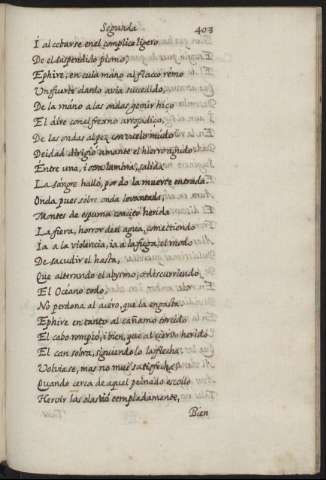 Segunda 403
I al cebarse en el complice ligero
De el suspendido plomo,
Ephire, en cuia mano al flaco remo
Un fuerte dardo avia succedido,
De la mano a las ondas gemir hizo
El aire con el fresno arrojadiço,
De las ondas al pez con vuelo mudo
Deidad dirigió amante el hierro agudo.
Entre una, i otra lamina, salida
La sangre halló, por do la muerte entrada.
Onda, pues sobre onda levantada,
Montes de espuma concitó herida
La fiera, horror de el agua, cometiendo
Ia a la violencia, ia a la fuga el modo
De sacudir el hasta,
Que alterando el abysmo, o discurriendo
El Oceano todo,
No perdona al acero, que la engasta.
Ephire en tanto al cañamo torcido
El cabo rompió, i bien, que al ciervo herido
El can sobra, siguiendo lo la flecha.
Volviase, mas no mui satisfecha,
Quando cerca de aquel peinado escollo
Hervir las olas vió templadamente,
Bien